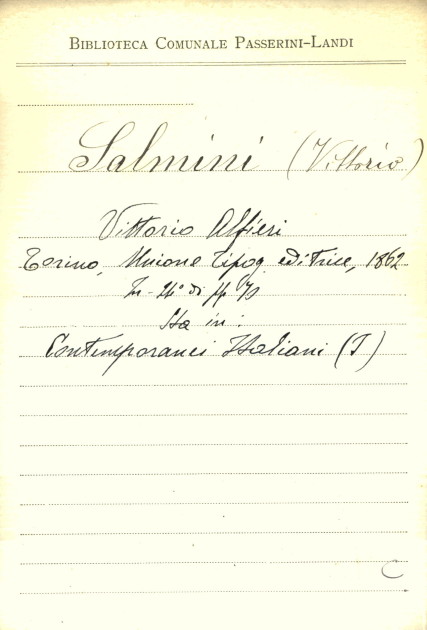 BIBLIOTECA COMUNALE PASSERINI-LANDI
Salmini (Vittorio)
Vittorio Alfieri
Torino, Unione Tipog. editrice, 1862
In-24° di pp.
Sta in:
Contemporanei Italiani (I)
C